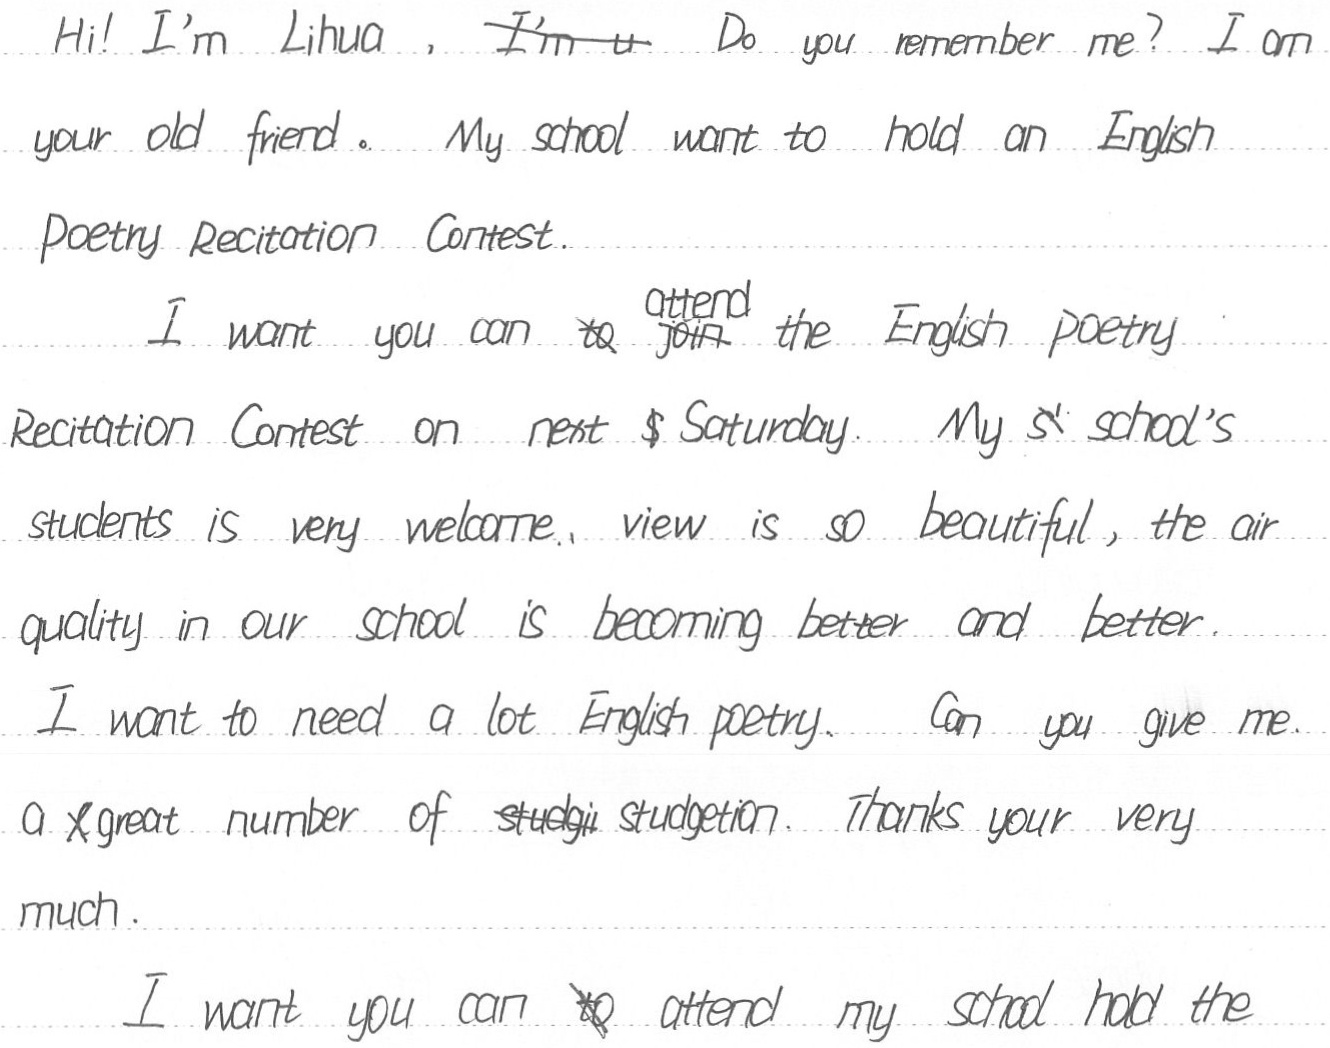 Hi! I'm Lihua , Do you remember me? I am
your old friend. My school want to hold an English
Poetry Recitation Contest.
I want you can attend the English poetry
Recitation Contest on next Saturday. My school's
students is very welcome, view is so beautiful, the air
quality in our school is becoming better and better.
I want to need a lot English poetry. Can you give me.
a great number of studgetion. Thanks your very
much.
I want you can attend my school hold the